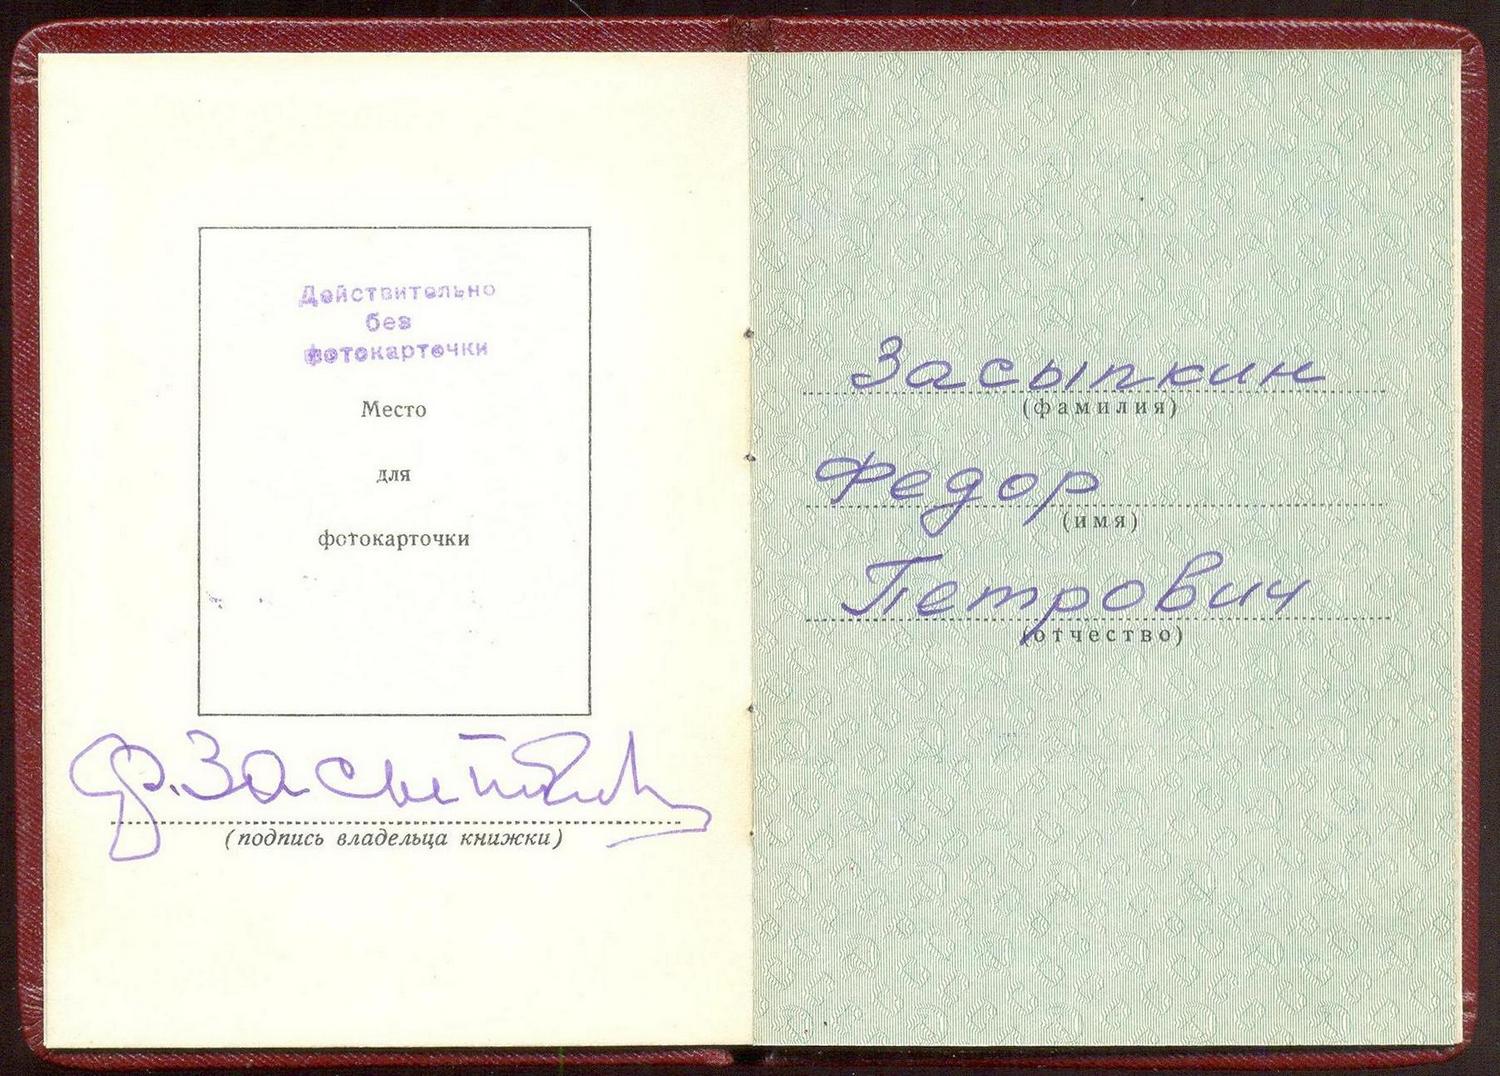 Действительно
без
фотокарточки
Место
для
фотокарточки
(подпись владельца книжки)
Засыпкин
(фамилия)
Федор
(имя)
Петрович
(отчество)